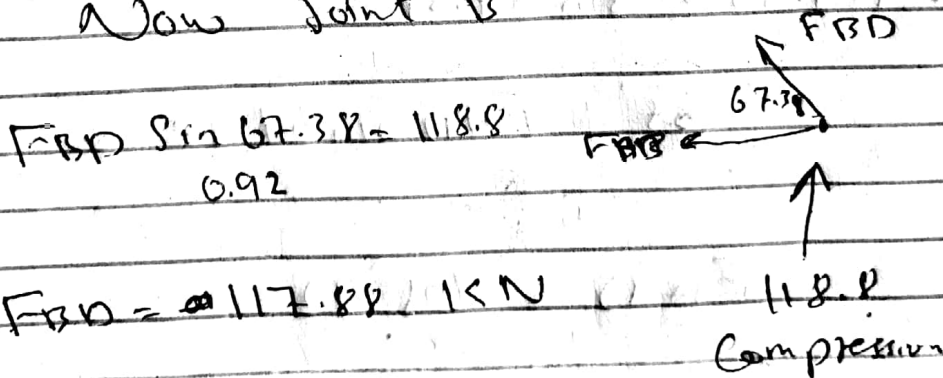 Now Joint B
FBD
67.38
FBD Sin 67.38 = 118.8
FAB
0.92
FBD = 117.88 KN
118.8
Compression